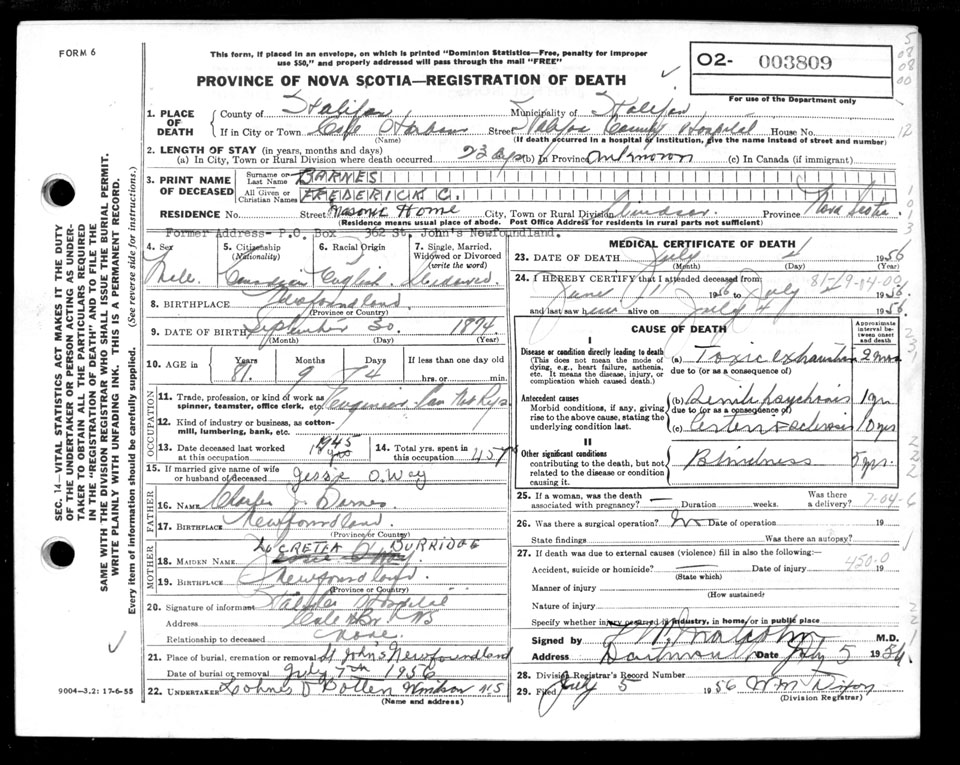 FORM 6
This form, if placed in an envelope, on which is printed "Dominion Statistics—Free, penalty for improper
use $50," and properly addressed will pass through the mail "FREE"
PROVINCE OF NOVA SCOTIA—REGISTRATION OF DEATH
02- 003809
For use of the Department only
1. PLACE OF DEATH
County of Halifax Municipality of Halifax
If in City or Town Cole Harbour Street Halifax County Hospital House No.
(Name) (If death occurred in a hospital or institution, give the name instead of street and number)
2. LENGTH OF STAY (in years, months and days)
(a) In City, Town or Rural Division where death occurred 23 days (b) In Province unknown (c) In Canada (if immigrant)
3. PRINT NAME OF DECEASED
Surname or Last Name BARNES
All Given or Christian Names FREDERICK C.
RESIDENCE House No. Street Masonic Home City, Town or Rural Division Windsor Province Nova Scotia
(Residence means usual place of abode. Post Office Address for residents in rural parts not sufficient)
Former Address- P.O. Box 362 St. John's Newfoundland.
4. Sex 5. Citizenship (Nationality) 6. Racial Origin 7. Single, Married, Widowed or Divorced (write the word)
Male. Canadian English Widowed
8. BIRTHPLACE Newfoundland
(Province or Country)
9. DATE OF BIRTH September 30 1874
(Month) (Day) (Year)
10. AGE Years Months Days If less than one day old
81. 9 4 hrs. or min.
OCCUPATION
11. Trade, profession, or kind of work as spinner, teamster, office clerk, etc. Engineer
12. Kind of industry or business, as cotton-mill, lumbering, bank, etc.
13. Date deceased last worked at this occupation 1945
14. Total yrs. spent in this occupation 45 yrs
15. If married give name of wife or husband of deceased Jessie O. Way
FATHER
16. NAME Charles J. Barnes
17. BIRTHPLACE Newfoundland.
(Province or Country)
MOTHER
18. MAIDEN NAME LUCRETIA BURRIDGE
19. BIRTHPLACE Newfoundland.
(Province or Country)
20. Signature of informant Halifax Hospital
Address Cole Hbr NS
Relationship to deceased None.
21. Place of burial, cremation or removal St John's Newfoundland
Date of burial or removal July 7th 1956
22. UNDERTAKER Windsor NS
(Name and address)
9004-3.2: 17-6-55
MEDICAL CERTIFICATE OF DEATH
23. DATE OF DEATH July 4 1956
(Month) (Day) (Year)
24. I HEREBY CERTIFY that I attended deceased from
June 11 1956 to July 1956.
and last saw him alive on July 4 1956.
CAUSE OF DEATH
Approximate interval between onset and death
I
Disease or condition directly leading to death
(This does not mean the mode of dying, e.g., heart failure, asthenia, etc. It means the disease, injury, or complication which caused death.)
(a) Toxic exhaustion 2 mos
due to (or as a consequence of)
Antecedent causes
Morbid conditions, if any, giving rise to the above cause, stating the underlying condition last.
(b) Senile psychosis 1 yr
due to (or as a consequence of)
(c) Arteriosclerosis 10 yrs
II
Other significant conditions
contributing to the death, but not related to the disease or condition causing it.
Blindness 5 yrs.
25. If a woman, was the death associated with pregnancy? — Duration weeks. Was there a delivery?
7-04-6
26. Was there a surgical operation? No Date of operation 19
State findings Was there an autopsy?
27. If death was due to external causes (violence) fill in also the following:—
Accident, suicide or homicide? — Date of injury 19
450-0
(State which)
Manner of injury
(How sustained)
Nature of injury
Specify whether injury occurred in industry, in home, or in public place
Signed by Malcolm M.D.
Address Dartmouth Date July 5 1956.
28. Division Registrar's Record Number
29. Filed July 5 1956 W.M. Dixon
(Division Registrar)
SEC. 14—VITAL STATISTICS ACT MAKES IT THE DUTY
OF THE UNDERTAKER OR PERSON ACTING AS UNDER-
TAKER TO OBTAIN ALL THE PARTICULARS REQUIRED
IN THE "REGISTRATION OF DEATH" AND TO FILE THE
SAME WITH THE DIVISION REGISTRAR WHO SHALL ISSUE THE BURIAL PERMIT.
WRITE PLAINLY WITH UNFADING INK. THIS IS A PERMANENT RECORD.
Every item of information should be carefully supplied. (See reverse side for instructions.)